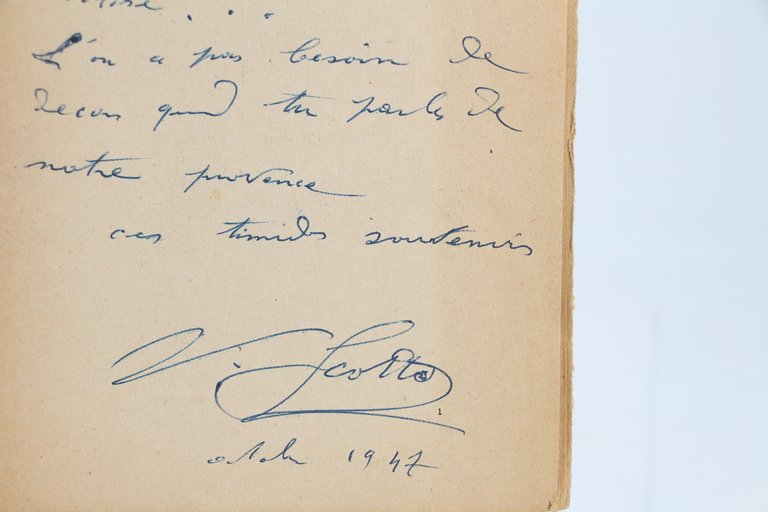 L'on a pas besoin de
decors quand tu parles de
notre provence
ces timides souvenirs
V. Scotto
1
octobre 1947